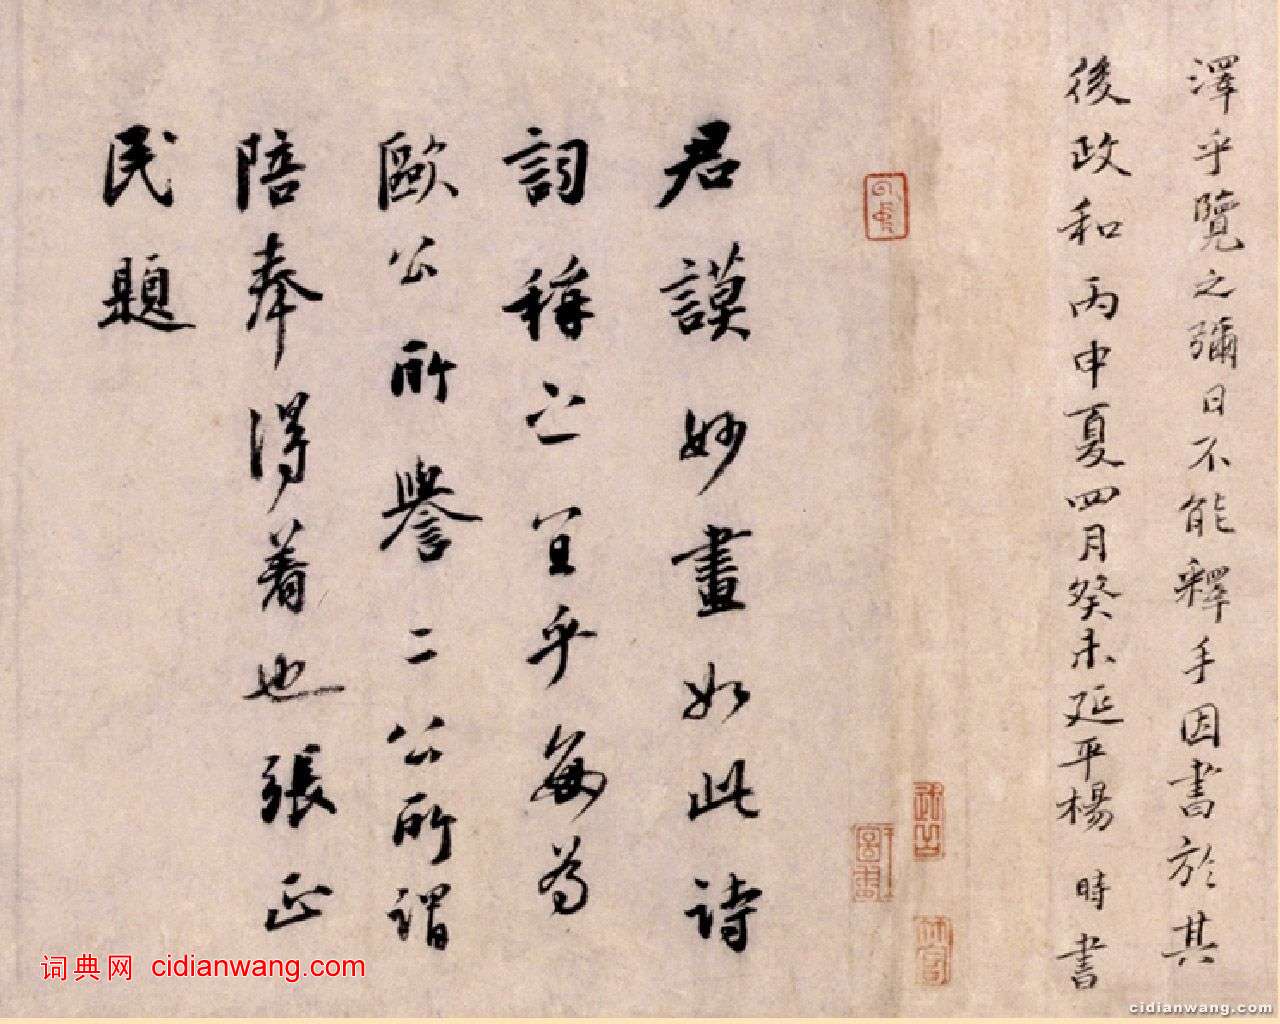 澤乎覽之彌日不能釋手因書於其
後政和丙申夏四月癸未延平楊時書
君謨妙畫如此詩
詞稱之宜乎每為
歐公所譽二公所謂
陪奉得着也張正
民題
词典网 cidianwang.com
cidianwang.com